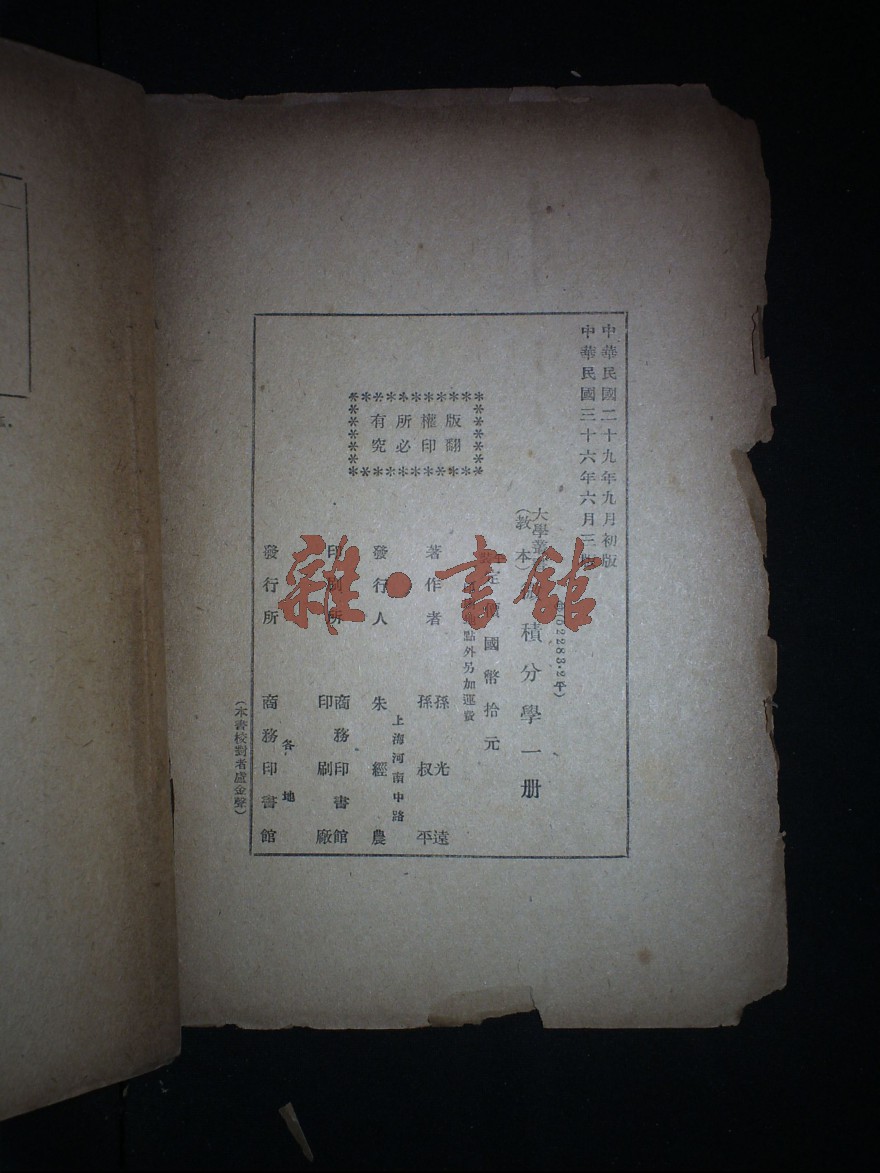 中華民國二十九年九月初版
中華民國三十六年六月三版
大學叢
(教本)
積分學一册
02283·2平)
定價國幣拾元
點外另加運費
版權所有
翻印必究
著作者
孫光遠
孫叔平
上海河南中路
發行人
朱經農
印刷所
商務印書館
印刷廠
各地
發行所
商務印書館
(本書校對者盧金聲)
雜·書館